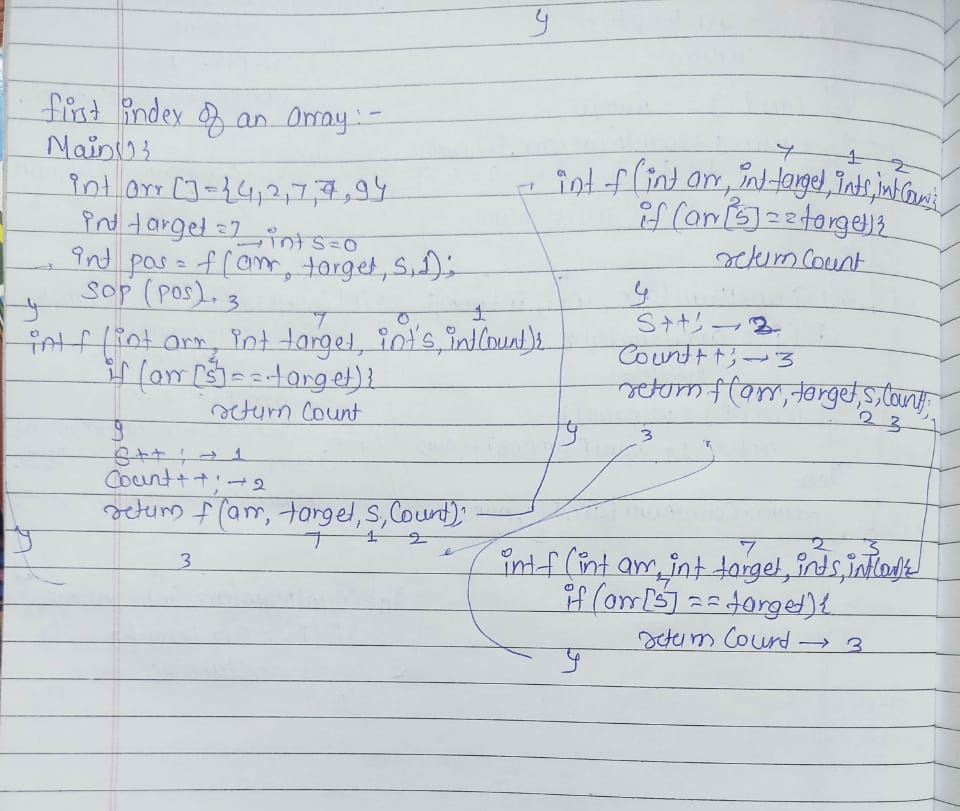 }
first index of an array :-
Main(){
int arr[]={4,2,7,7,9}
int target=7
→ int s=0
int pos = f(arr, target, s, 1);
SOP (pos). 3
}
7 0 1
int f (int arr, int target, int s, int Count){
4
if (arr[s]==target){
return Count
}
S++; → 1
Count++; → 2
return f(arr, target, s, Count);
7 1 2
}
3
7 1 2
int f (int arr, int target, int s, int Count{
2
if (arr[s]==target){
return Count
}
S++; → 2
Count++; → 3
return f(arr, target, s, Count);
2 3
}
3
7 2 3
int f (int arr, int target, int s, int Count){
7
if (arr[s]==target){
return Count → 3
}